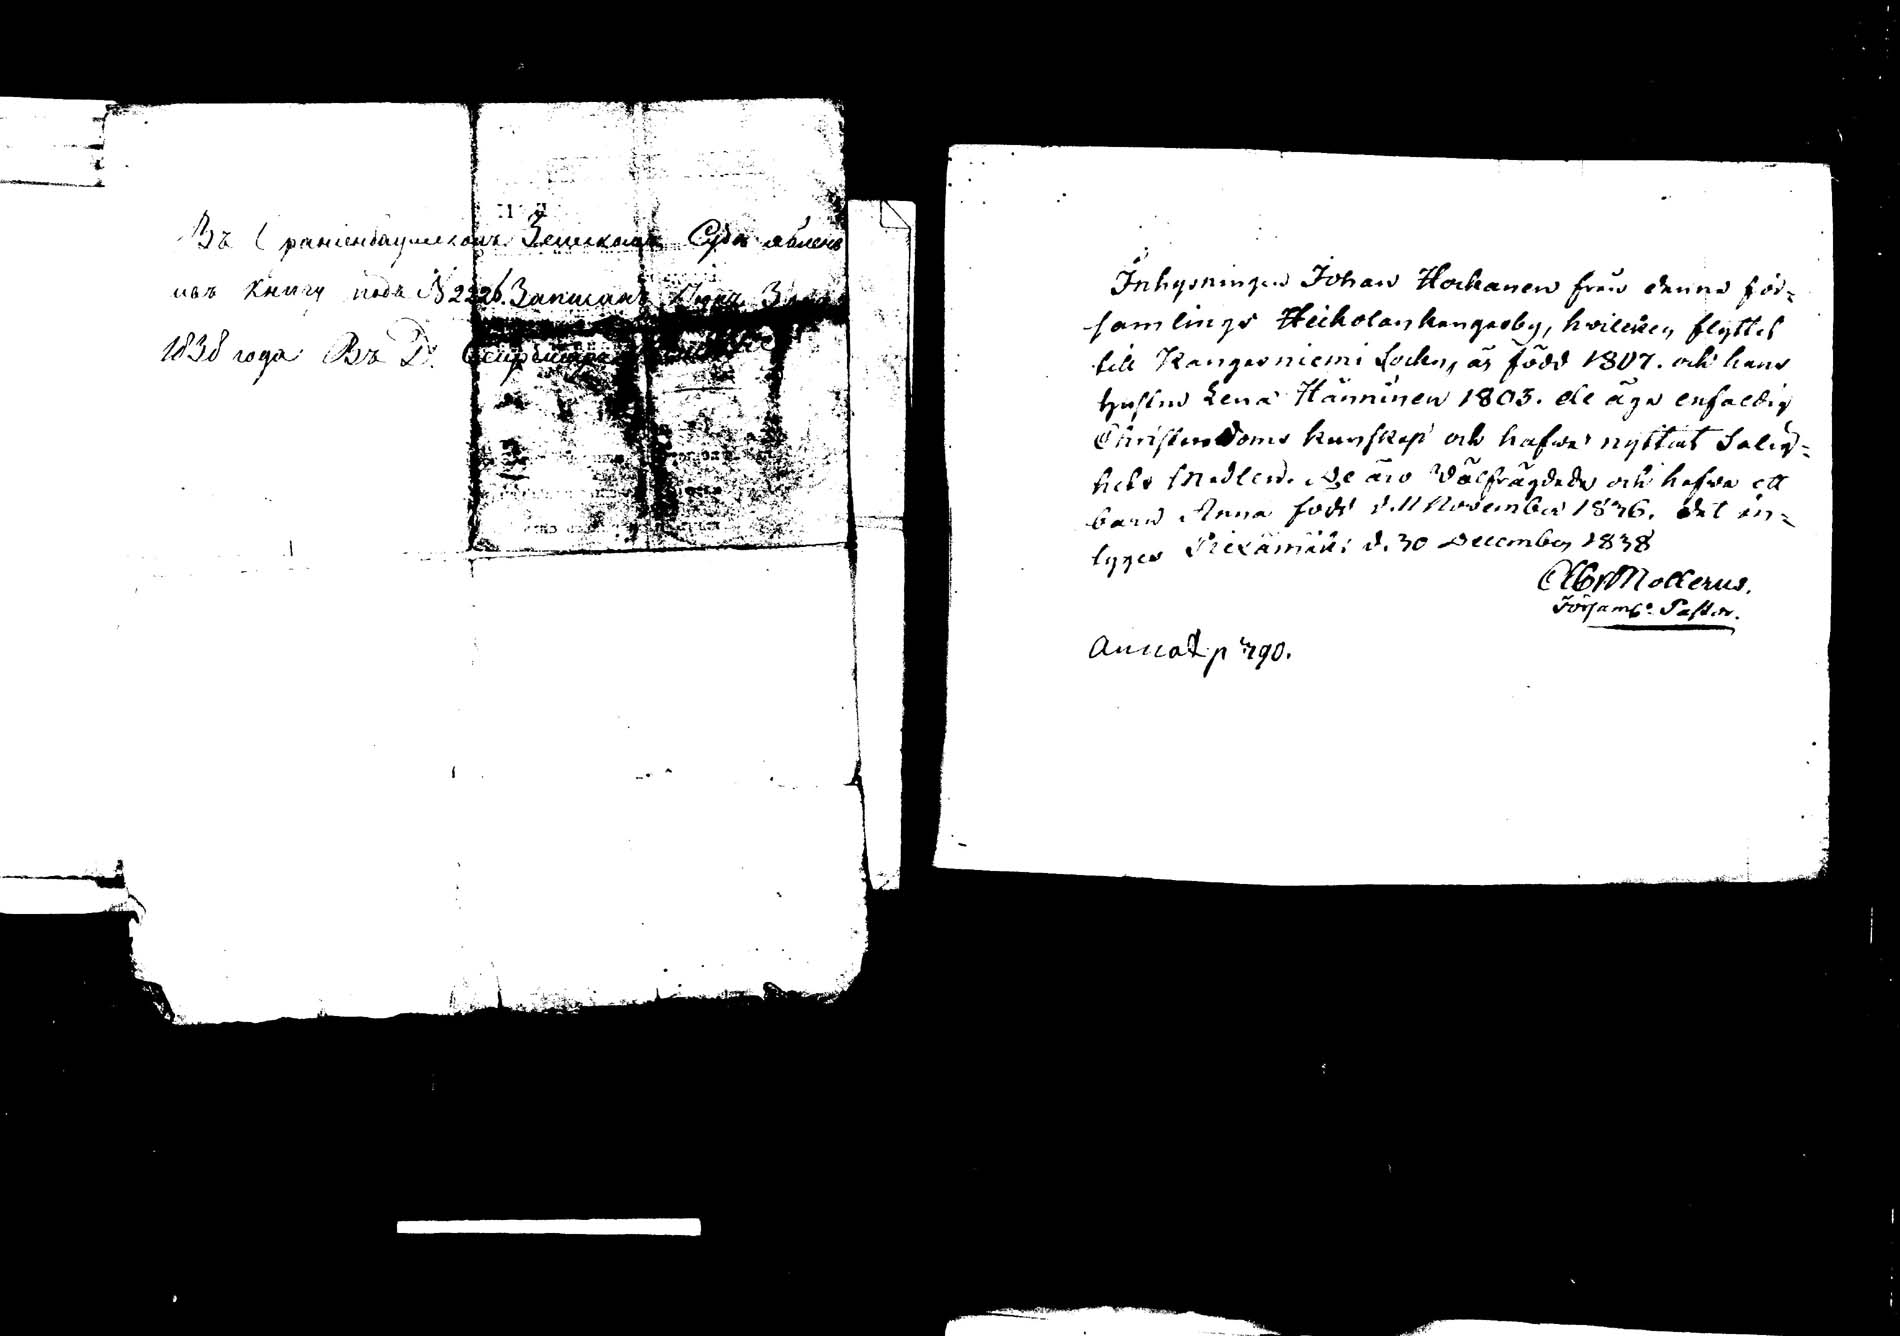 Въ Ораніенбаумскомъ Земскомъ Судѣ явленъ
и въ книгу подъ № 2226. Записанъ 3
1838 года Въ Д.
Inhysningen Johan Hockanen från denna för=
samlings Heickolankangasby, hvilcken flyttet
till Kangasniemi Sockn, är född 1807. och hans
hustru Lena Hänninen 1803. de äga enfaldig
Christendoms kunskap och hafva nyttiat Salig=
hets Medlen. De äro välfrägdade och hafva ett
barn Anna född d. 11 November 1836. Det in=
tyges Piexämäki d. 30 December 1838
Abr Mollerus.
Församls. Pastor.
Annot p 790.